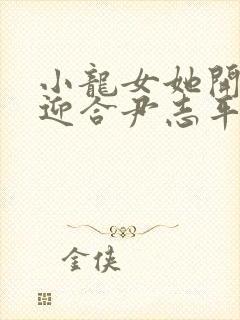 小龍女她開
迎合尹志平
金俠